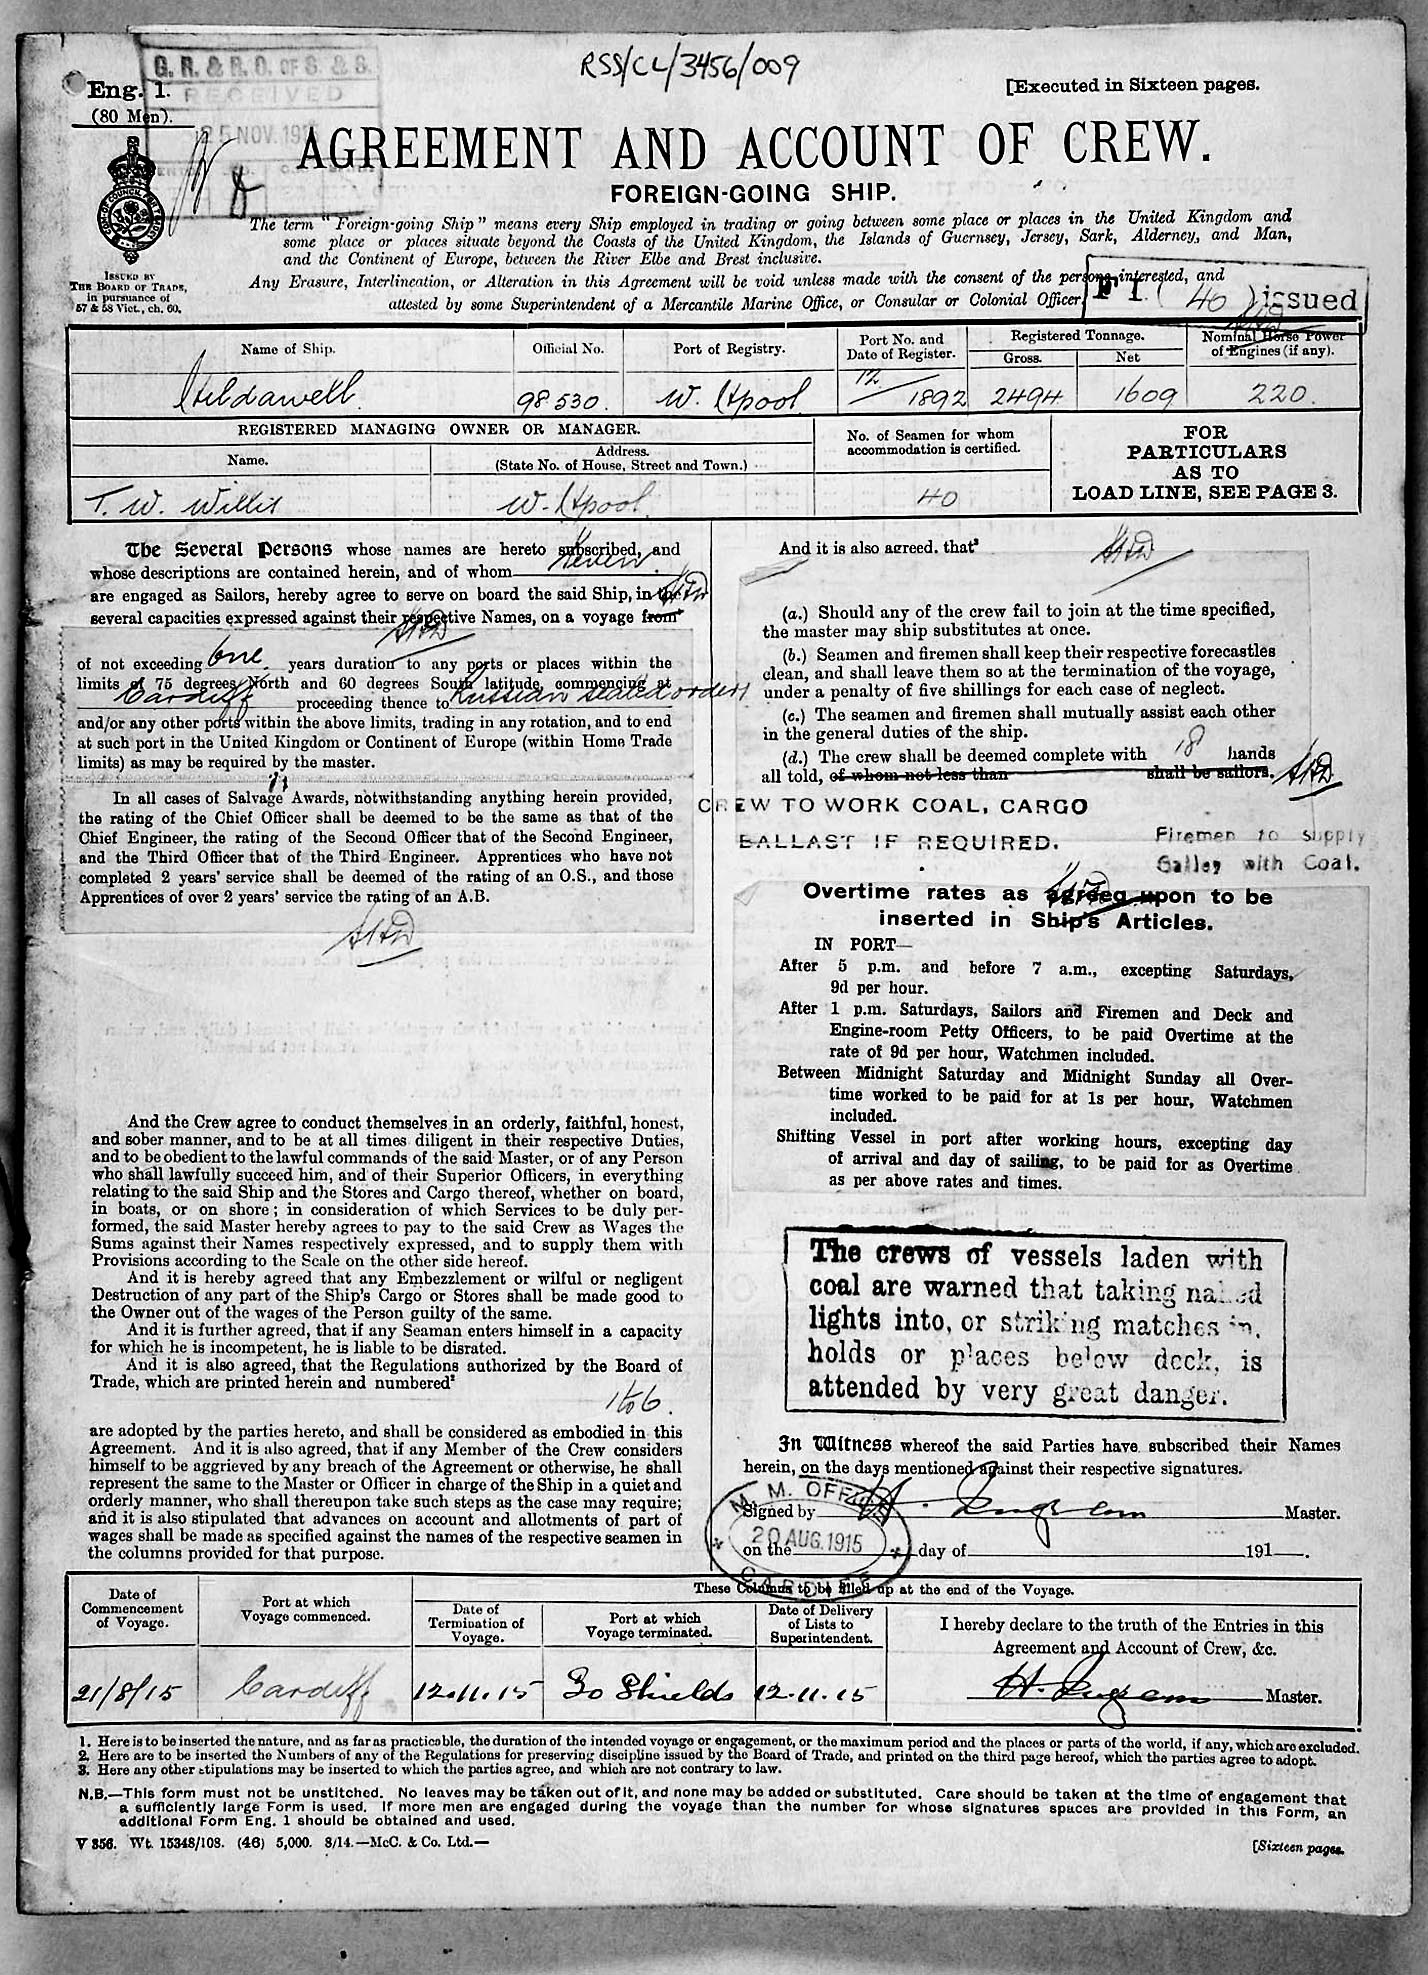 RSS/CL/3456/009
G. R. & R. O. OF S. & S.
RECEIVED
25 NOV. 191
Eng. 1.
(80 Men).
[Executed in Sixteen pages.
AGREEMENT AND ACCOUNT OF CREW.
FOREIGN-GOING SHIP.
ISSUED BY
THE BOARD OF TRADE,
in pursuance of
57 & 58 Vict., ch. 60.
The term "Foreign-going Ship" means every Ship employed in trading or going between some place or places in the United Kingdom and
some place or places situate beyond the Coasts of the United Kingdom, the Islands of Guernsey, Jersey, Sark, Alderney, and Man,
and the Continent of Europe, between the River Elbe and Brest inclusive.
Any Erasure, Interlineation, or Alteration in this Agreement will be void unless made with the consent of the persons interested, and
attested by some Superintendent of a Mercantile Marine Office, or Consular or Colonial Officer.
F I. ( 40 ) issued
Name of Ship.
Official No.
Port of Registry.
Port No. and
Date of Register.
Registered Tonnage.
Gross.
Net
Nominal Horse Power
of Engines (if any).
Hildawell
98530.
W. Hpool
12/1892
2494
1609
220.
REGISTERED MANAGING OWNER OR MANAGER.
Name.
Address.
(State No. of House, Street and Town.)
No. of Seamen for whom
accommodation is certified.
FOR
PARTICULARS
AS TO
LOAD LINE, SEE PAGE 3.
T. W. Willis
W. Hpool.
40
The Several Persons whose names are hereto subscribed, and
whose descriptions are contained herein, and of whom Seven
are engaged as Sailors, hereby agree to serve on board the said Ship, in the
several capacities expressed against their respective Names, on a voyage from
of not exceeding One years duration to any ports or places within the
limits of 75 degrees North and 60 degrees South latitude, commencing at
Cardiff proceeding thence to Russian sealed orders
and/or any other ports within the above limits, trading in any rotation, and to end
at such port in the United Kingdom or Continent of Europe (within Home Trade
limits) as may be required by the master.
In all cases of Salvage Awards, notwithstanding anything herein provided,
the rating of the Chief Officer shall be deemed to be the same as that of the
Chief Engineer, the rating of the Second Officer that of the Second Engineer,
and the Third Officer that of the Third Engineer. Apprentices who have not
completed 2 years' service shall be deemed of the rating of an O.S., and those
Apprentices of over 2 years' service the rating of an A.B.
And the Crew agree to conduct themselves in an orderly, faithful, honest,
and sober manner, and to be at all times diligent in their respective Duties,
and to be obedient to the lawful commands of the said Master, or of any Person
who shall lawfully succeed him, and of their Superior Officers, in everything
relating to the said Ship and the Stores and Cargo thereof, whether on board,
in boats, or on shore; in consideration of which Services to be duly per-
formed, the said Master hereby agrees to pay to the said Crew as Wages the
Sums against their Names respectively expressed, and to supply them with
Provisions according to the Scale on the other side hereof.
And it is hereby agreed that any Embezzlement or wilful or negligent
Destruction of any part of the Ship's Cargo or Stores shall be made good to
the Owner out of the wages of the Person guilty of the same.
And it is further agreed, that if any Seaman enters himself in a capacity
for which he is incompetent, he is liable to be disrated.
And it is also agreed, that the Regulations authorized by the Board of
Trade, which are printed herein and numbered²
1 to 6.
are adopted by the parties hereto, and shall be considered as embodied in this
Agreement. And it is also agreed, that if any Member of the Crew considers
himself to be aggrieved by any breach of the Agreement or otherwise, he shall
represent the same to the Master or Officer in charge of the Ship in a quiet and
orderly manner, who shall thereupon take such steps as the case may require;
and it is also stipulated that advances on account and allotments of part of
wages shall be made as specified against the names of the respective seamen in
the columns provided for that purpose.
And it is also agreed, that³
(a.) Should any of the crew fail to join at the time specified,
the master may ship substitutes at once.
(b.) Seamen and firemen shall keep their respective forecastles
clean, and shall leave them so at the termination of the voyage,
under a penalty of five shillings for each case of neglect.
(c.) The seamen and firemen shall mutually assist each other
in the general duties of the ship.
(d.) The crew shall be deemed complete with 18 hands
all told, of whom not less than shall be sailors.
CREW TO WORK COAL, CARGO
BALLAST IF REQUIRED.
Firemen to supply
Galley with Coal.
Overtime rates as agreed upon to be
inserted in Ship's Articles.
IN PORT—
After 5 p.m. and before 7 a.m., excepting Saturdays,
9d per hour.
After 1 p.m. Saturdays, Sailors and Firemen and Deck and
Engine-room Petty Officers, to be paid Overtime at the
rate of 9d per hour, Watchmen included.
Between Midnight Saturday and Midnight Sunday all Over-
time worked to be paid for at 1s per hour, Watchmen
included.
Shifting Vessel in port after working hours, excepting day
of arrival and day of sailing, to be paid for as Overtime
as per above rates and times.
The crews of vessels laden with
coal are warned that taking naked
lights into, or striking matches in,
holds or places below deck, is
attended by very great danger.
In Witness whereof the said Parties have subscribed their Names
herein, on the days mentioned against their respective signatures.
Signed by H. Ingram Master.
on the day of 191 .
M. M. OFFICE
20 AUG. 1915
CARDIFF
These Columns to be filled up at the end of the Voyage.
Date of
Commencement
of Voyage.
Port at which
Voyage commenced.
Date of
Termination of
Voyage.
Port at which
Voyage terminated.
Date of Delivery
of Lists to
Superintendent.
I hereby declare to the truth of the Entries in this
Agreement and Account of Crew, &c.
21/8/15
Cardiff
12.11.15
So Shields
12.11.15
H. Ingram Master.
1. Here is to be inserted the nature, and as far as practicable, the duration of the intended voyage or engagement, or the maximum period and the places or parts of the world, if any, which are excluded.
2. Here are to be inserted the Numbers of any of the Regulations for preserving discipline issued by the Board of Trade, and printed on the third page hereof, which the parties agree to adopt.
3. Here any other stipulations may be inserted to which the parties agree, and which are not contrary to law.
N.B.—This form must not be unstitched. No leaves may be taken out of it, and none may be added or substituted. Care should be taken at the time of engagement that
a sufficiently large Form is used. If more men are engaged during the voyage than the number for whose signatures spaces are provided in this Form, an
additional Form Eng. 1 should be obtained and used.
V 856. Wt. 15348/108. (46) 5,000. 8/14.—McC. & Co. Ltd.—
[Sixteen pages.